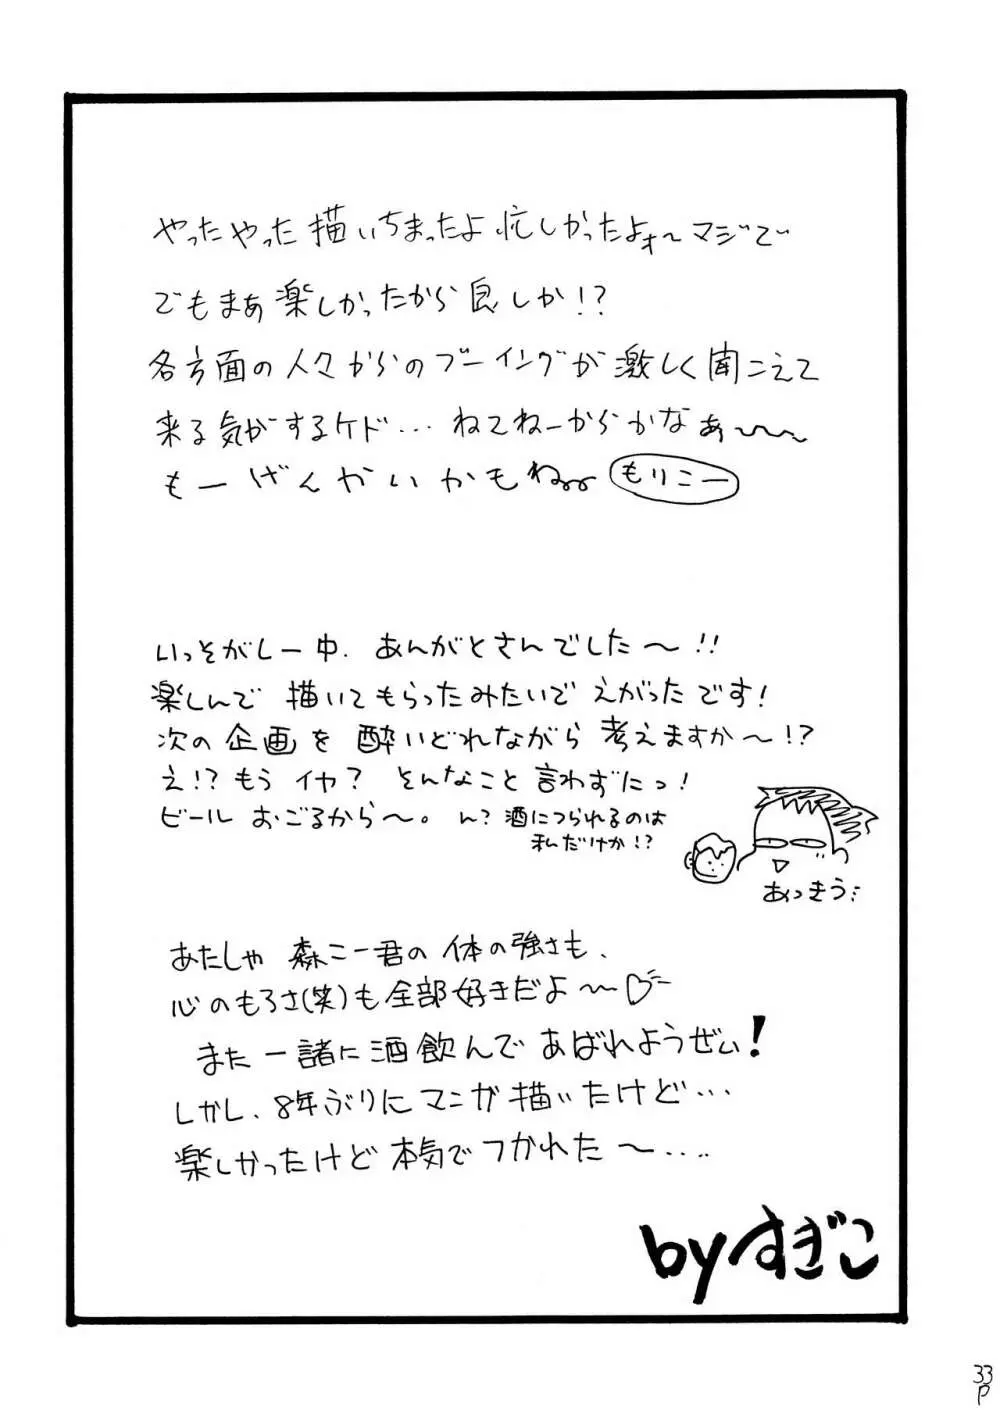 やったやった描いちまったよ忙しかったよォ〜マジで
でもまあ楽しかったから良しか!?
各方面の人々からのブーイングが激しく聞こえて
来る気がするケド… ねてねーからかなぁ〜〜
もーげんかいかもね もりこー
いっそがしー中、あんがとさんでした〜!!
楽しんで 描いてもらったみたいで えがったです!
次の企画を 酔いどれながら 考えますか〜!?
え!? もう イヤ? そんなこと 言わずにっ!
ビール おごるから〜。 ん? 酒につられるのは
私だけか!?
あっきう
あたしゃ 森こー君の 体の強さも、
心のもろさ(笑)も全部好きだよ〜♡
また 一諸に 酒飲んで あばれようぜぃ!
しかし、8年ぶりにマンガ描いたけど…
楽しかったけど 本気でつかれた〜….
byすぎこ
33P